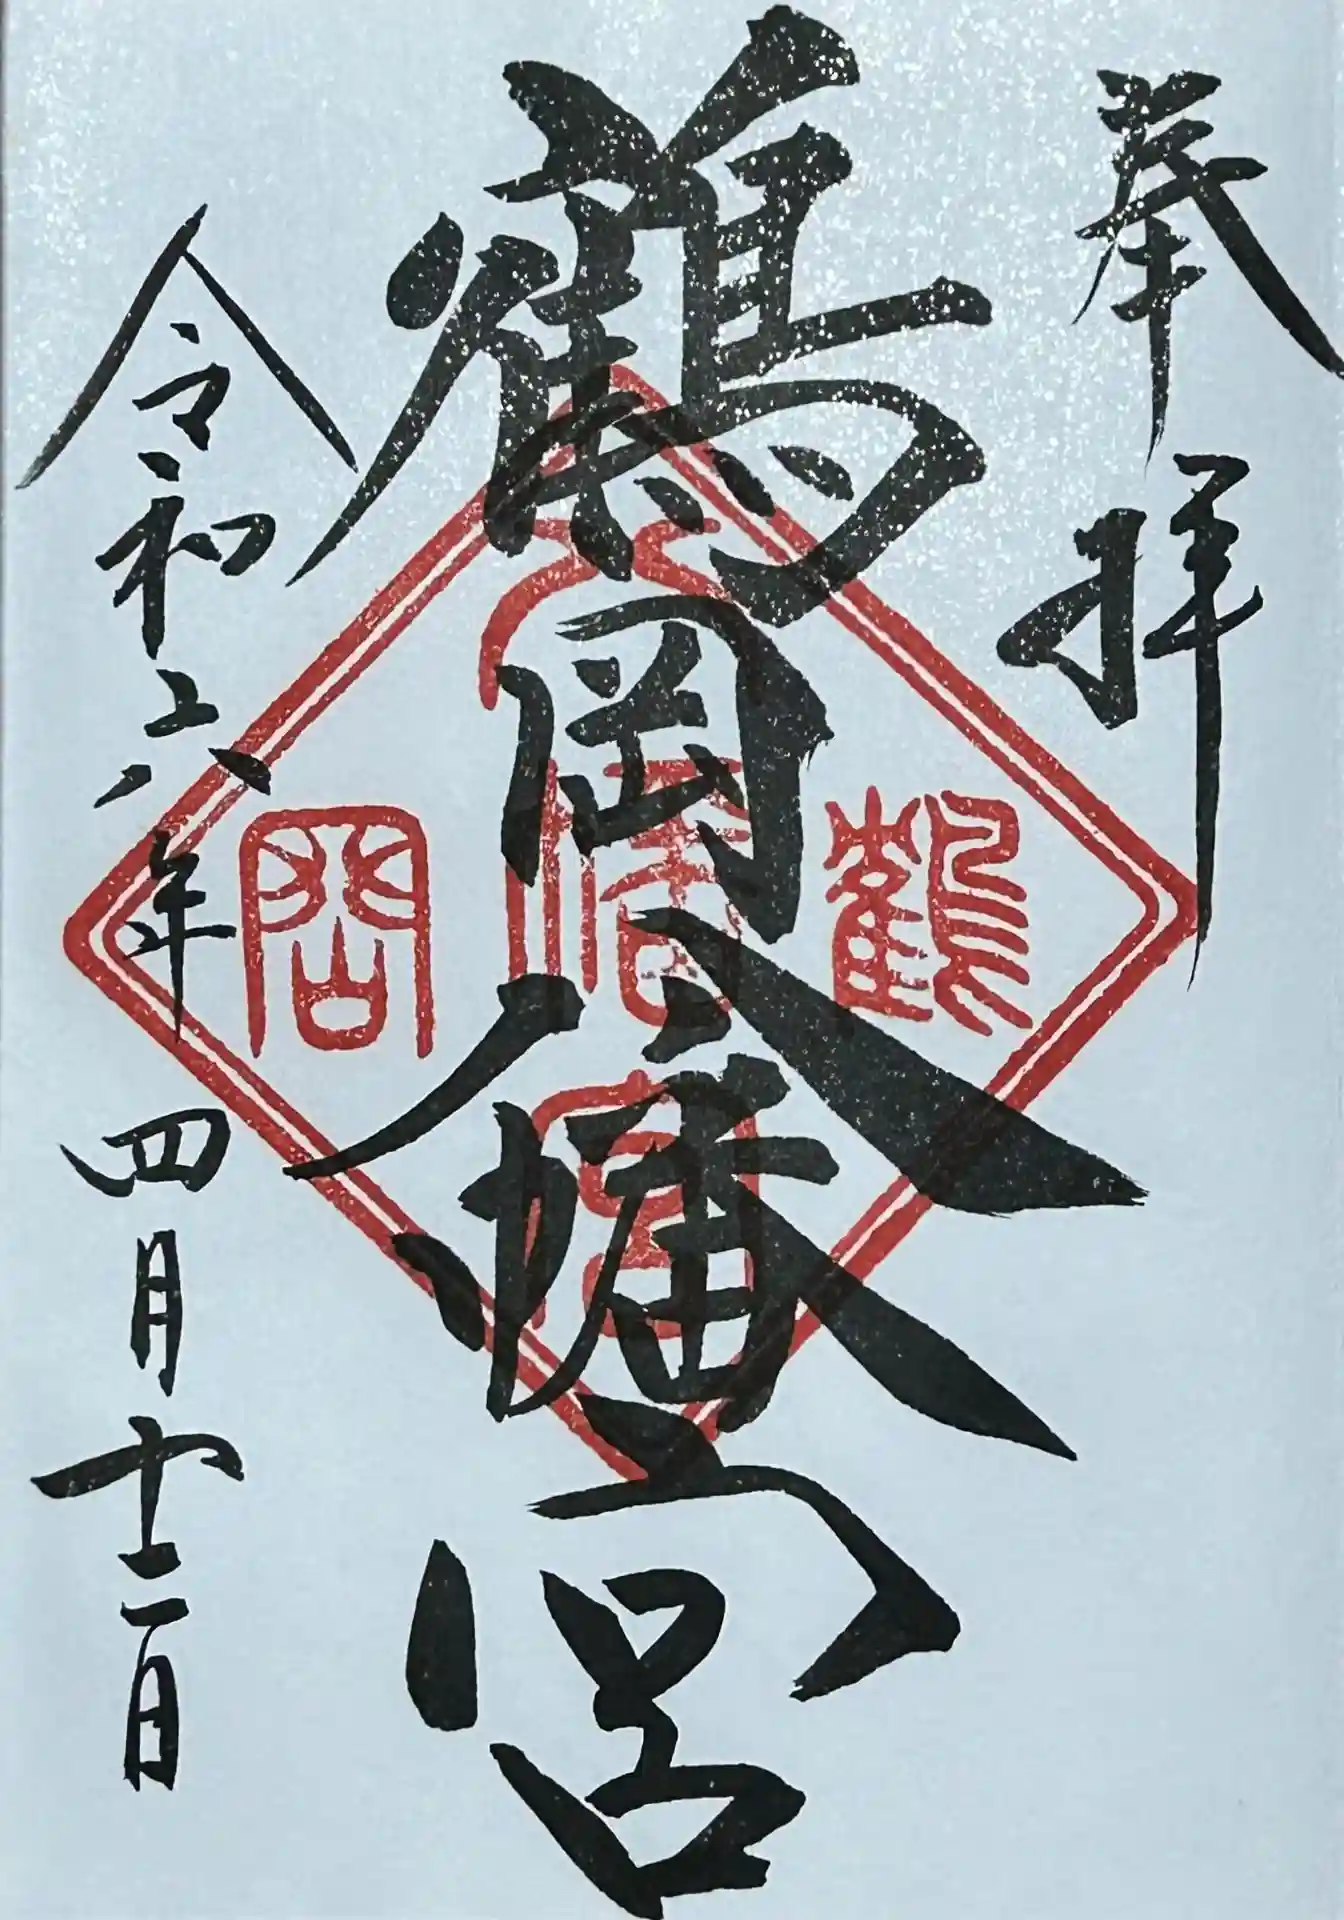 奉拝
鶴岡八幡宮
鶴岡八幡宮
令和六年四月十二日